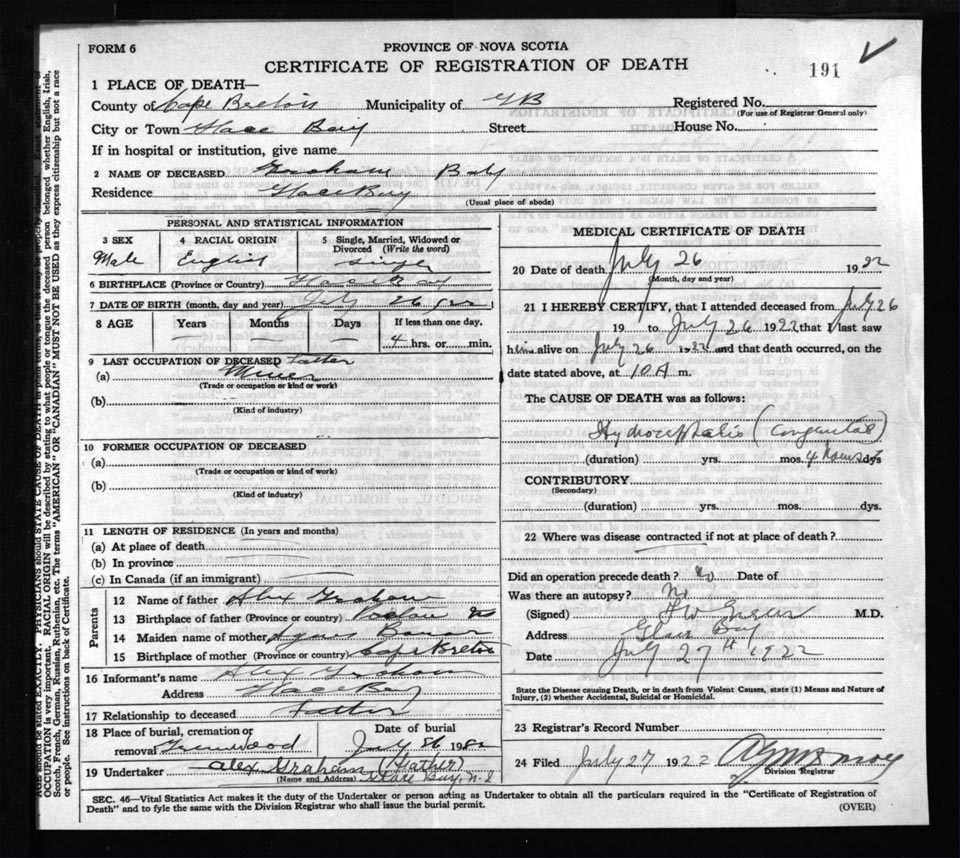 FORM 6
PROVINCE OF NOVA SCOTIA
CERTIFICATE OF REGISTRATION OF DEATH
191
1 PLACE OF DEATH—
County of Cape Breton Municipality of GB Registered No.
(For use of Registrar General only)
City or Town Glace Bay Street House No.
If in hospital or institution, give name
2 NAME OF DECEASED Graham Baby
Residence Glace Bay
(Usual place of abode)
PERSONAL AND STATISTICAL INFORMATION
3 SEX 4 RACIAL ORIGIN 5 Single, Married, Widowed or Divorced (Write the word)
Male English Single
6 BIRTHPLACE (Province or Country) Glace Bay
7 DATE OF BIRTH (month, day and year) July 26
8 AGE Years Months Days If less than one day,
4 hrs. or min.
9 LAST OCCUPATION OF DECEASED Father
(a) Miner
(Trade or occupation or kind of work)
(b)
(Kind of industry)
10 FORMER OCCUPATION OF DECEASED
(a)
(Trade or occupation or kind of work)
(b)
(Kind of industry)
11 LENGTH OF RESIDENCE (In years and months)
(a) At place of death
(b) In province
(c) In Canada (if an immigrant)
Parents
12 Name of father Alex Graham
13 Birthplace of father (Province or country)
14 Maiden name of mother Agnus
15 Birthplace of mother (Province or country) Cape Breton
16 Informant's name Alex Graham
Address Glace Bay
17 Relationship to deceased Father
18 Place of burial, cremation or Date of burial
removal Greenwood July 26 1922
19 Undertaker Alex Graham (Father)
(Name and Address) Glace Bay, N.S
MEDICAL CERTIFICATE OF DEATH
20 Date of death July 26 1922
(Month, day and year)
21 I HEREBY CERTIFY, that I attended deceased from July 26
19 to July 26 1922 that I last saw
him alive on July 26 1922 and that death occurred, on the
date stated above, at 10 A m.
The CAUSE OF DEATH was as follows:
Hydrocephalis (Congenital)
(duration) yrs. mos. 4 hours dys
CONTRIBUTORY
(Secondary)
(duration) yrs. mos. dys.
22 Where was disease contracted if not at place of death?
Did an operation precede death? No Date of
Was there an autopsy? No
(Signed) M.D.
Address Glace Bay
Date July 27th 1922
State the Disease causing Death, or in death from Violent Causes, state (1) Means and Nature of
Injury, (2) whether Accidental, Suicidal or Homicidal.
23 Registrar's Record Number
24 Filed July 27 1922
Division Registrar
SEC. 46—Vital Statistics Act makes it the duty of the Undertaker or person acting as Undertaker to obtain all the particulars required in the "Certificate of Registration of
Death" and to fyle the same with the Division Registrar who shall issue the burial permit. (OVER)
AGE should be stated EXACTLY. PHYSICIANS should STATE CAUSE OF DEATH in plain terms,
OCCUPATION is very important. RACIAL ORIGIN will be described by stating to what people or tongue the deceased person belonged whether English, Irish,
Scotch, French, German, Russian, Ruthenian, etc. The terms "AMERICAN" OR "CANADIAN" MUST NOT BE USED as they express citizenship but not a race
of people. See instructions on back of Certificate.